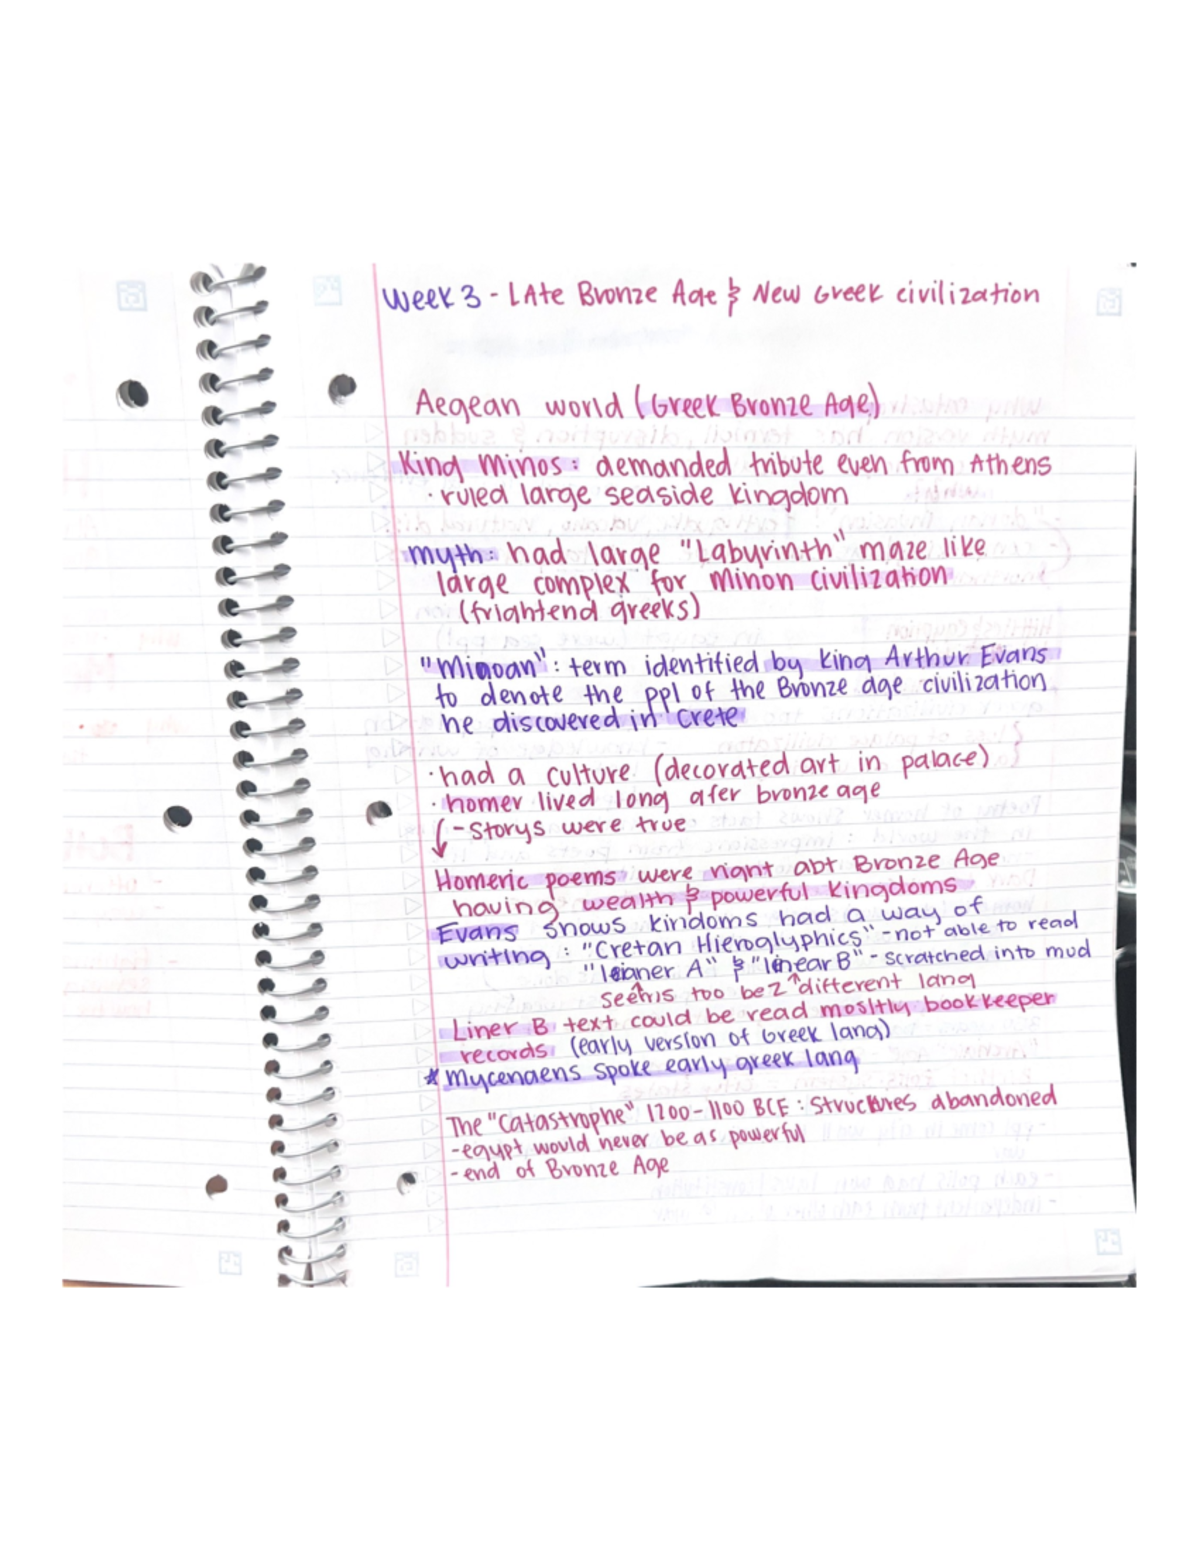 Week 3 - LAte Bronze Age & New Greek civilization
Aegean world (Greek Bronze Age)
King Minos: demanded tribute even from Athens
· ruled large seaside kingdom
myth: had large "Labyrinth" maze like
large complex for Minon civilization
(frightend greeks)
"Minoan": term identified by king Arthur Evans
to denote the ppl of the Bronze age civilization
he discovered in Crete
· had a culture (decorated art in palace)
· homer lived long afer bronze age
- Storys were true
Homeric poems were right abt Bronze Age
having wealth & powerful kingdoms
Evans shows kindoms had a way of
writing : "Cretan Hieroglyphics" - not able to read
"leigner A" & "linear B" - scratched into mud
seems too be 2 different lang
Liner B text could be read mosltly bookkeeper
records (early version of Greek lang)
* Mycenaens spoke early greek lang
The "Catastrophe" 1200-1100 BCE : Structures abandoned
- egypt would never be as powerful
- end of Bronze Age